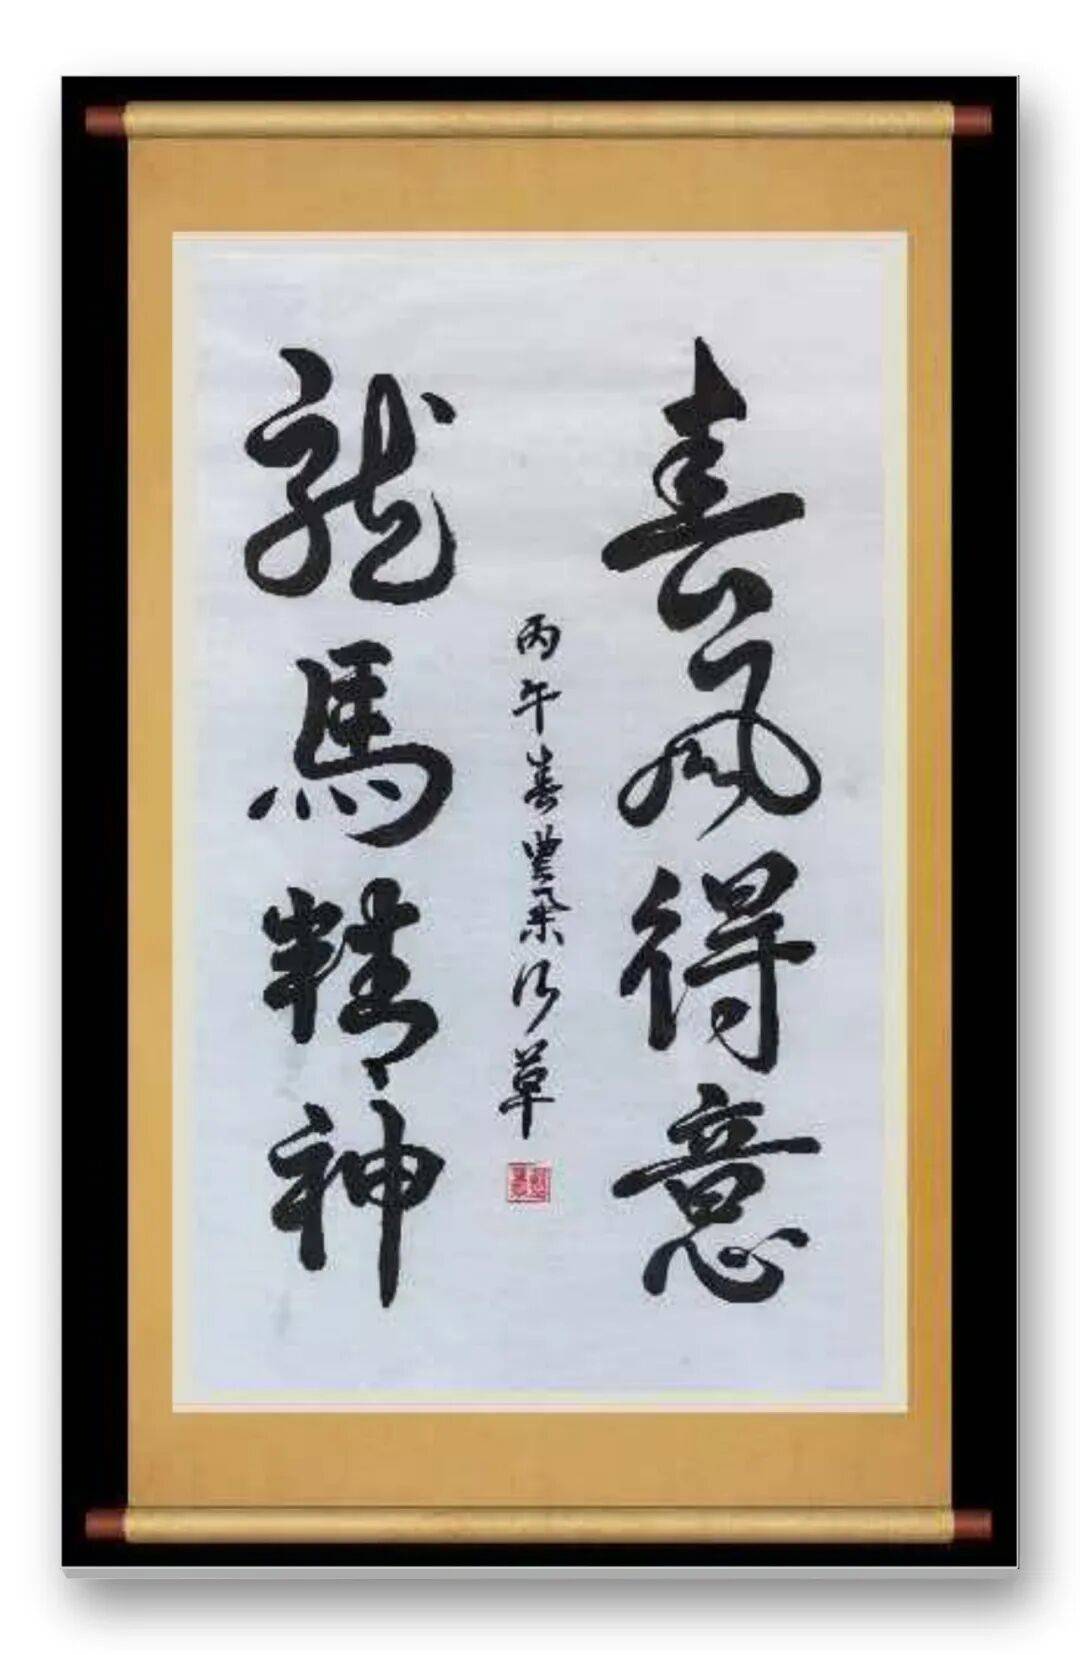 春風得意
龍馬精神
丙午春豐
草